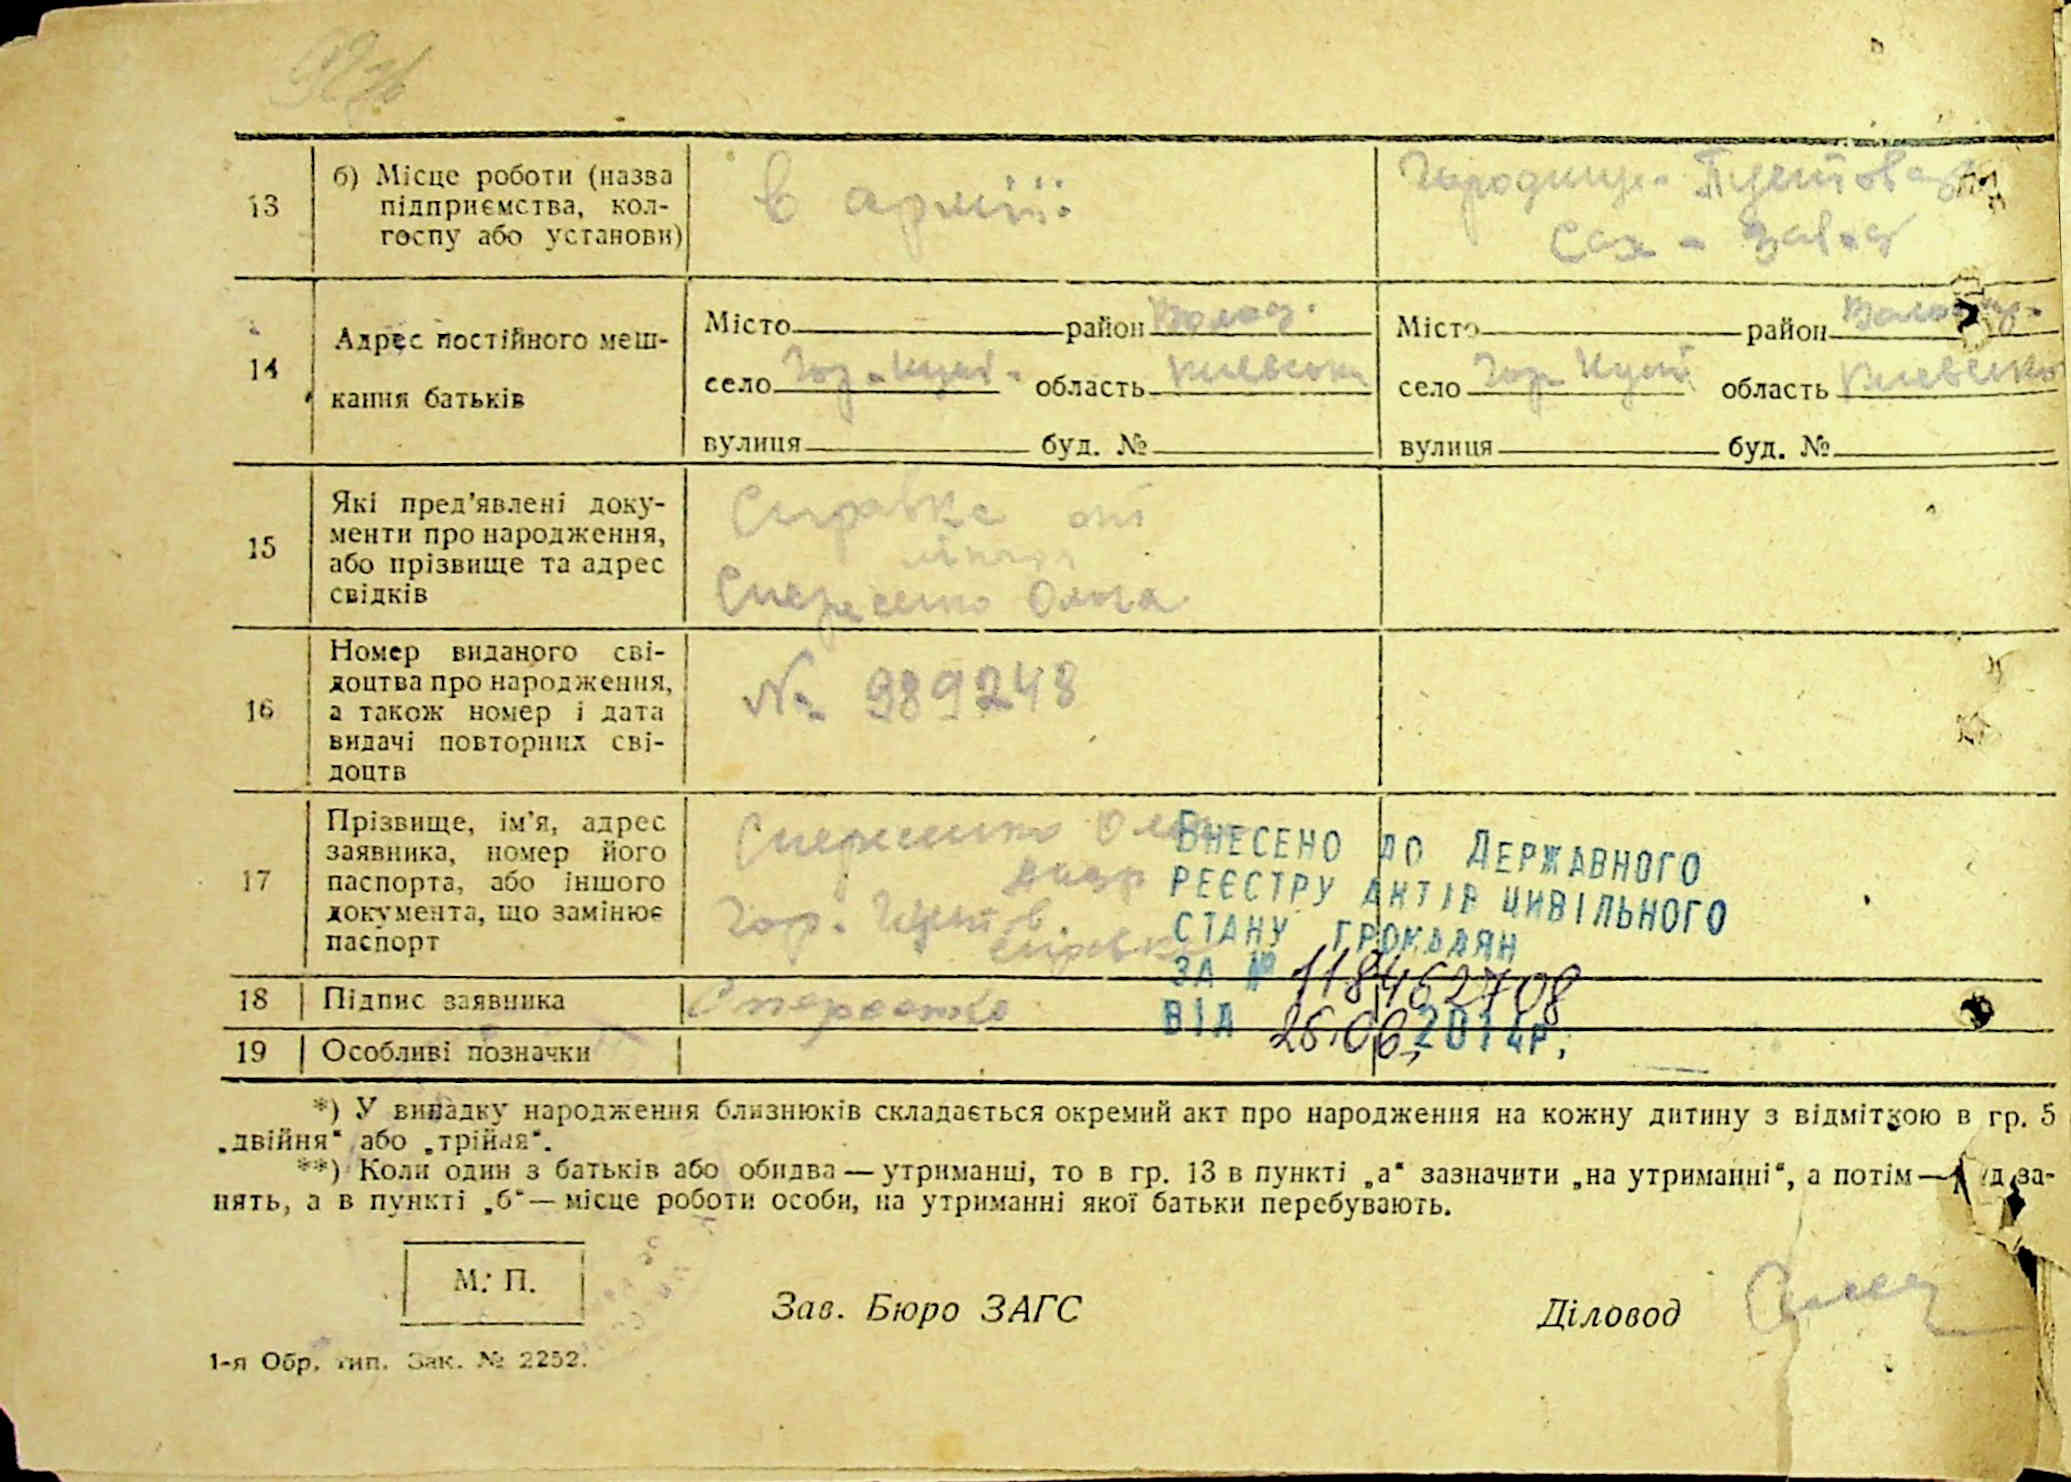 13
б) Місце роботи (назва
підприємства, кол-
госпу або установи)
в армії
Городище-Пустова
Сах - завод
14
Адрес постійного меш-
кання батьків
Місто район Волод.
село Гор-Пуст. область Киевська
вулиця буд. №
Місто район Володар.
село Гор-Пуст область Киевско
вулиця буд. №
15
Які пред'явлені доку-
менти про народження,
або прізвище та адрес
свідків
Справка от
Ольга
16
Номер виданого сві-
доцтва про народження,
а також номер і дата
видачі повторних сві-
доцтв
№ 989248
17
Прізвище, ім'я, адрес
заявника, номер його
паспорта, або іншого
документа, що замінює
паспорт
Гор. Пустов
справка
ВНЕСЕНО ДО ДЕРЖАВНОГО
РЕЄСТРУ АКТІВ ЦИВІЛЬНОГО
СТАНУ ГРОМАДЯН
ЗА № 118462708
ВІД 26.06.2014р.
18 Підпис заявника
19 Особливі позначки
*) У випадку народження близнюків складається окремий акт про народження на кожну дитину з відміткою в гр. 5
„двійня“ або „трійня“.
**) Коли один з батьків або обидва — утриманці, то в гр. 13 в пункті „а“ зазначити „на утриманні“, а потім — під за-
нять, а в пункті „б“ — місце роботи особи, на утриманні якої батьки перебувають.
М. П.
Зав. Бюро ЗАГС
Діловод
1-я Обр. тип. Зак. № 2252.